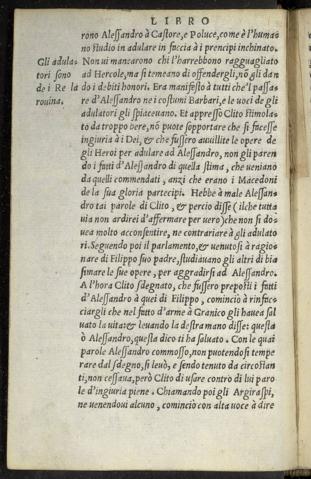 LIBRO
rono Alessandro à Castore, e Polluce, come è l'huma
no studio in adulare in faccia à i prencipi inchinato.
Gli adula-
tori sono
de i Re la
rouina.
Non ui mancarono chi l'harrebbono ragguagliato
ad Hercole, ma si temeano di offendergli, nõ gli dan
do i debiti honori. Era manifesto à tutti che'l passa
re d'Alessandro ne i costumi Barbari, e le uoci de gli
adulatori gli spiaceuano. Et appresso Clito stimola-
to da troppo bere, nõ pote sopportare che si facesse
ingiuria à i Dei, & che fussero auuilite le opere de
gli Heroi per adulare ad Alessandro, non gli paren
do i fatti d'Alessandro di quella stima, che ueniano
da quelli commendati, anzi che erano i Macedoni
de la sua gloria partecipi. Hebbe à male Alessan-
dro tai parole di Clito, & percio disse (il che tutta
uia non ardirei d'affermare per uero) che non si do-
uea molto acconsentire, ne contrariare à gli adulato
ri. Seguendo poi il parlamento, & uenutosi à ragio-
nare di Filippo suo padre, studiauano gli altri di bia
simare le sue opere, per aggradirsi ad Alessandro.
A l'hora Clito sdegnato, che fussero preposti i fatti
d'Alessandro à quei di Filippo, cominciò à rinfac-
ciargli che nel fatto d'arme à Granico gli hauea sal
uato la uita: & leuando la destra mano disse: questa
ò Alessandro, questa dico ti ha saluato. Con le quai
parole Alessandro commosso, non puotendosi tempe
rare dal sdegno, si leuò, e sendo tenuto da circostan
ti, non cessaua, però Clito di usare contro di lui paro
le d'ingiuria piene. Chiamando poi gli Argiraspi,
ne uenendoui alcuno, cominciò con alta uoce à dire